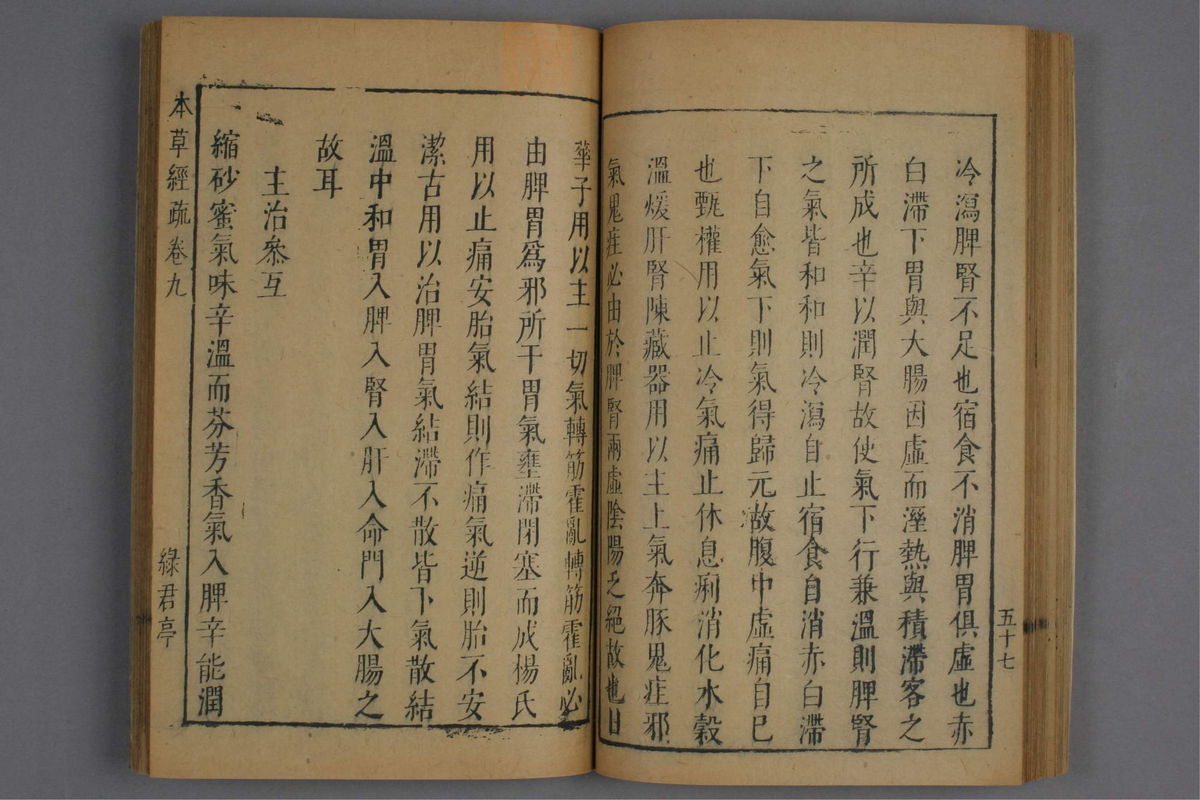 冷瀉脾腎不足也宿食不消脾胃俱虛也赤
白滯下胃與大腸因虛而溼熱與積滯客之
所成也辛以潤腎故使氣下行兼溫則脾腎
之氣皆和和則冷瀉自止宿食自消赤白滯
下自愈氣下則氣得歸元故腹中虛痛自已
也甄權用以止冷氣痛止休息痢消化水穀
溫煖肝腎陳藏器用以主上氣奔豚鬼疰邪
氣鬼疰必由於脾腎兩虛陰陽乏絕故也日
五十七
華子用以主一切氣轉筋霍亂轉筋霍亂必
由脾胃爲邪所干胃氣壅滯閉塞而成楊氏
用以止痛安胎氣結則作痛氣逆則胎不安
潔古用以治脾胃氣結滯不散皆下氣散結
溫中和胃入脾入腎入肝入命門入大腸之
故耳
主治參互
縮砂蜜氣味辛溫而芬芳香氣入脾辛能潤
本草經疏卷九
綠君亭